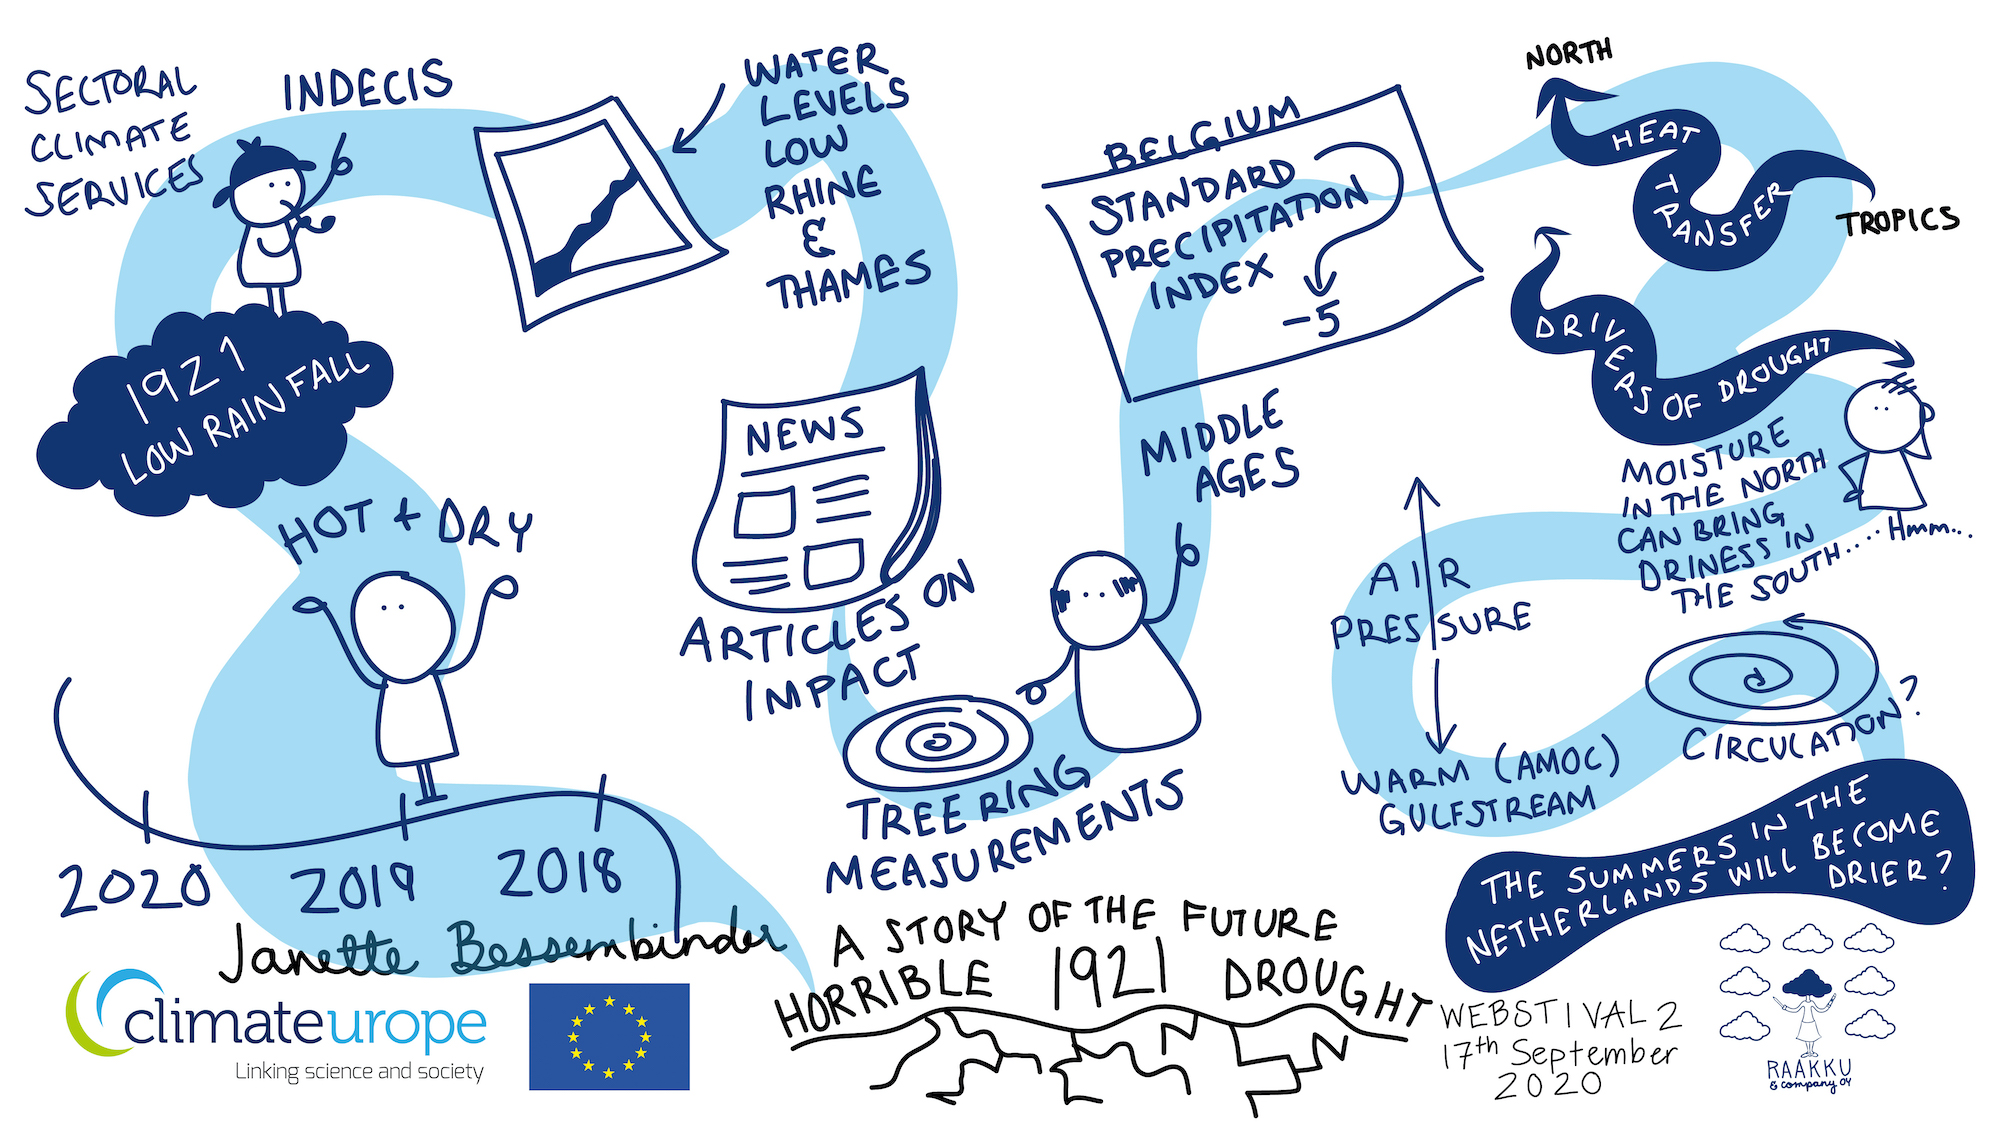 SECTORAL
CLIMATE
SERVICES
INDECIS
1921
LOW RAINFALL
HOT + DRY
2020
2019
2018
Janette Bessembinder
WATER
LEVELS
LOW
RHINE
&
THAMES
NEWS
ARTICLES ON
IMPACT
TREE RING
MEASUREMENTS
MIDDLE
AGES
BELGIUM
STANDARD
PRECIPITATION
INDEX
-5
NORTH
HEAT
TRANSFER
TROPICS
DRIVERS OF DROUGHT
MOISTURE
IN THE NORTH
CAN BRING
DRINESS IN
THE SOUTH....
Hmm...
AIR
PRESSURE
WARM (AMOC)
GULFSTREAM
CIRCULATION?
THE SUMMERS IN THE
NETHERLANDS WILL BECOME
DRIER?
A STORY OF THE FUTURE
HORRIBLE 1921 DROUGHT
climateurope
Linking science and society
WEBSTIVAL 2
17th September
2020
RAAKKU
& company OY